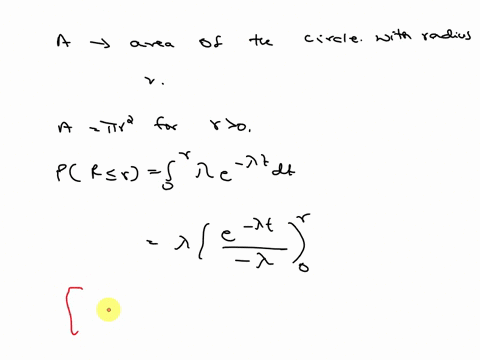 A → area of the circle. with radius
r.
A = πr² for r>0.
P(R ≤ r) = ∫₀^r λ e^{-λt} dt
= λ ( e^{-λt} / -λ )₀^r
[